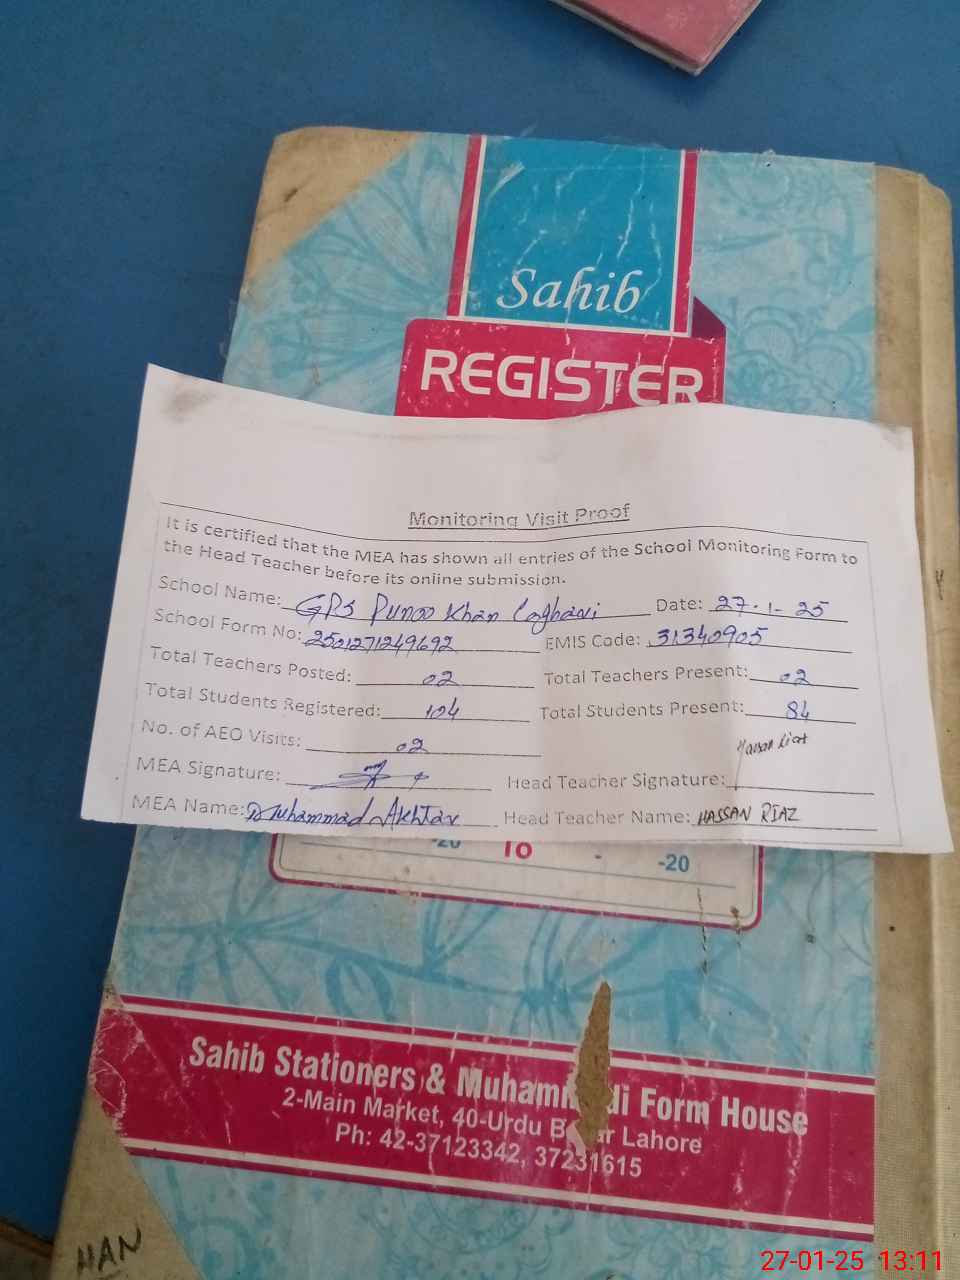 Sahib
REGISTER
Monitoring Visit Proof
It is certified that the MEA has shown all entries of the School Monitoring Form to
the Head Teacher before its online submission.
School Name: GPS Punoo Khan Laghari Date: 27-1-25
School Form No: 2501271249692 EMIS Code: 31340905
Total Teachers Posted: 02 Total Teachers Present: 02
Total Students Registered: 104 Total Students Present: 84
No. of AEO Visits: 02
MEA Signature: Head Teacher Signature: Hassan Riaz
MEA Name: Muhammad Akhtar Head Teacher Name: HASSAN RIAZ
-20 To - -20
Sahib Stationers & Muhammdi Form House
2-Main Market, 40-Urdu B ar Lahore
Ph: 42-37123342, 37231615
HAN
27-01-25 13:11